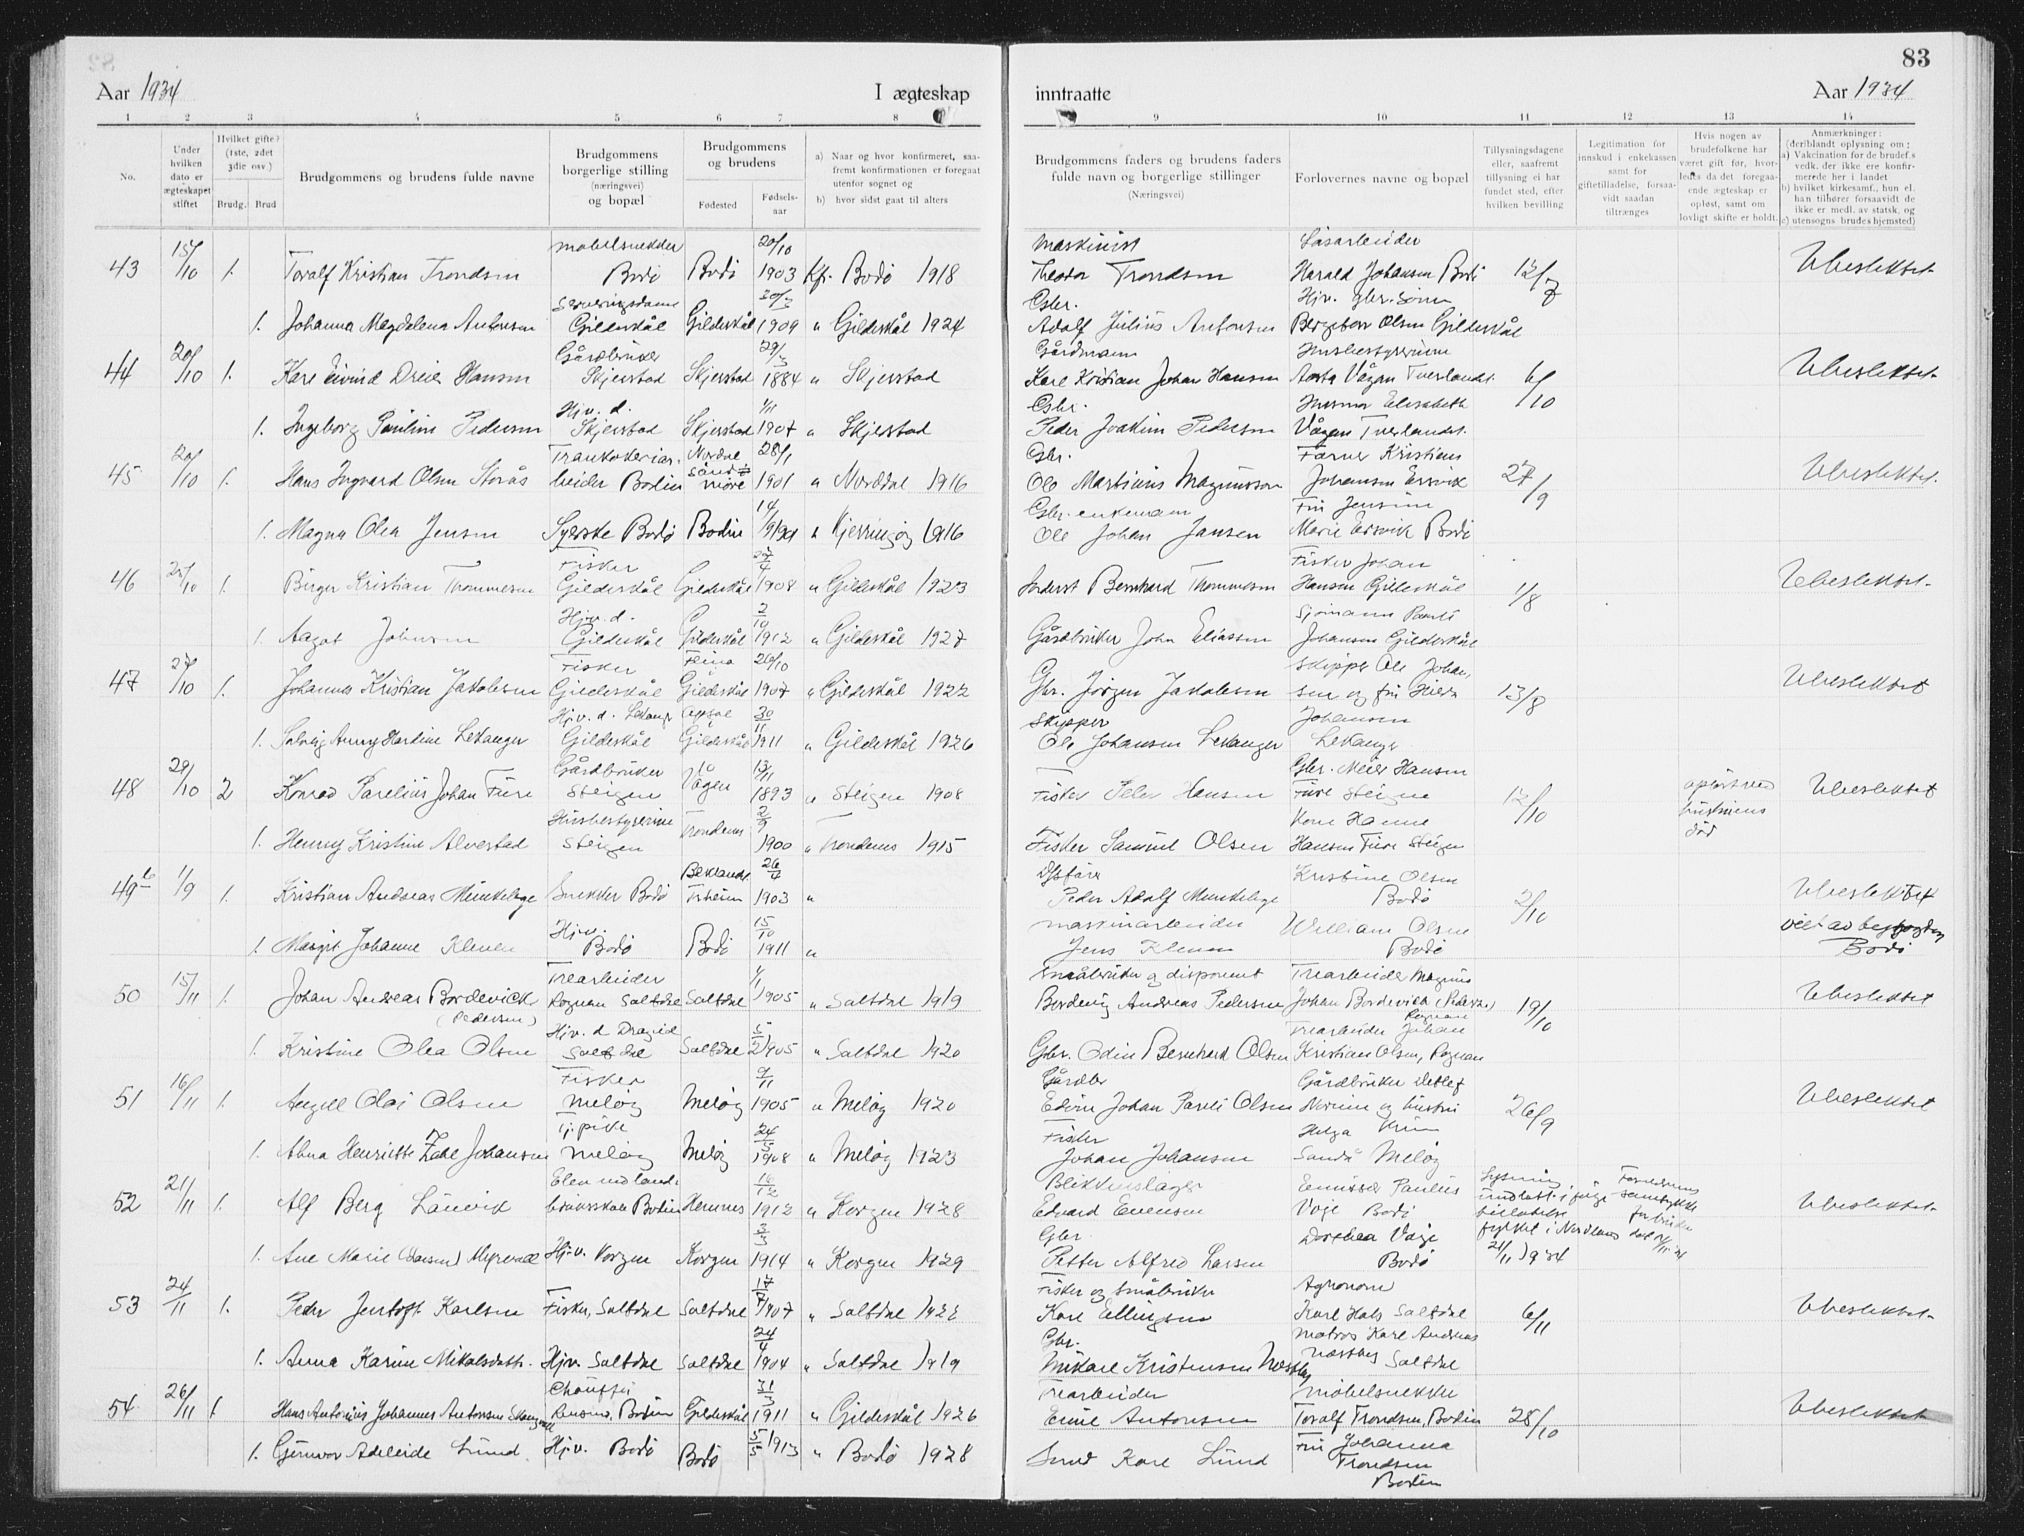 83
Aar 1934
I ægteskap
inntraatte
Aar 1934
1 2 3 4 5 6 7 8 9 10 11 12 13 14
No.
Under hvilken dato er ægteskapet stiftet
Hvilket gifte? (1ste, 2det 3die osv.)
Brudg. Brud
Brudgommens og brudens fulde navne
Brudgommens borgerlige stilling (næringsvei) og bopæl
Brudgommens og brudens
Fødested
Fødsels-aar
a) Naar og hvor konfirmeret, saa-fremt konfirmationen er foregaat utenfor sognet og
b) hvor sidst gaat til alters
Brudgommens faders og brudens faders fulde navn og borgerlige stillinger (Næringsvei)
Forlovernes navne og bopæl
Tillysningsdagene eller, saafremt tillysning ei har fundet sted, efter hvilken bevilling
Legitimation for innskud i enkekassen samt for giftetilladelse, forsaa-vidt saadan tiltrænges
Hvis nogen av brudefolkene har været gift før, hvor-ledes da det foregaa-ende ægteskap er opløst, samt om lovligt skifte er holdt.
Anmærkninger: (deriblandt oplysning om: a) Vakcination for de brudef.s vedk. der ikke ere konfir-merede her i landet b) hvilket kirkesamf., hun el. han tilhører forsaavidt de ikke er medl. av statsk. og c) utensogns brudes hjemsted)
43 15/10 1. Toralf Kristian Trondsen møbelsnekker Bodø Bodø 20/10 1903 Kfr. Bodø 1918 maskinist Theodor Trondsen Harald Johansen Bodø 12/7 Ubeslektet
1. Johanna Magdalena Antonsen Serveringsdame Gildeskål Gildeskål 1909 " Gildeskål 1924 Gbr. Adolf Julius Antonsen Hjv. gbr. Bergitte Olsen Gildeskål
44 20/10 1. Kare Eivind Dreier Hansen Gårdbruker Skjerstad Skjerstad 29/3 1884 " Skjerstad Gårdmann Karl Kristian Johan Hansen Husbestyrerinne Aasta Vågan Tverlandet. 6/10 Ubeslektet.
1. Ingeborg Pauline Pedersen Hjv. d. Skjerstad Skjerstad 1/11 1907 " Skjerstad Gbr. Peder Joakim Pedersen Elisabeth Vågan Tverlandet.
45 20/10 1. Hans Ingvard Olsen Storås beider Bodin Norddal søndmøre 28/1 1901 " Norddal 1916 Gbr. Ole Martinius Magnusson Kristian Johansen Ersvik 27/9 Ubeslektet.
1. Magna Olea Jensen Syerske Bodø Bodin 14/9 1901 " Kjerringøy 1916 Gbr. enkemann Ole Johan Jansen Fru Jensine Marie Ersvik Bodø
46 25/10 1. Birger Kristian Thommesen Fisker Gildeskål Gildeskål 27/4 1908 " Gildeskål 1923 Bernhard Thommesen Fisker Johan Hansen Gildeskål 1/8 Ubeslektet.
1. Aagot Johnsen Hjv. d. Gildeskål Gildeskål 2/10 1912 " Gildeskål 1927 Gårdbruker John Eliassen Sjømann Pareli Johansen Gildeskål
47 27/10 1. Johannes Kristian Jakobsen Fisker Gildeskål Fleina Gildeskål 26/10 1907 " Gildeskål 1922 Gbr. Jørgen Jakobsen Skipper Ole Johansen og fru Hilda 13/8 Ubeslektet
1. Solveig Anny Hartine Lekanger Hjv. d. Lekanger Gildeskål Gildeskål 30/11 1911 " Gildeskål 1926 Skipper Ole Johansen Lekanger Johansen Lekanger
48 29/10 2 Konrad Parelius Johan Fure Gårdbruker Steigen Vågen 13/11 1893 " Steigen 1908 Fisker Peder Hansen Gbr. Meier Hansen Fure Steigen 12/10 opløst ved hustruens død Ubeslektet
1. Henny Kristine Alvestad Husbestyrerinne Steigen Trondenes 2/9 1900 " Trondenes 1915 Fisker Samuel Olsen Kone Hanne Hansen Fure Steigen
49 b 1/9 1. Kristian Andreas Munkebye Snekker Bodø 26/4 1903 " Peder Adolf Munkebye Kristine Olsen Bodø 2/10 Ubeslektet
1. Margit Johanne Klemen Hjv. Bodø Bodø 15/10 1911 " maskinarbeider Jens Klemen William Olsen Bodø viet av byfogden Bodø
50 15/11 1. Johan Andreas Bordevick (Pedersen) Trearbeider Rognan Saltdal Saltdal 1/1 1905 " Saltdal 1919 Småbruker og disponent Bordevig Andreas Pedersen Trearbeider Magnus Johan Bordevick (Pedersen) Rognan 19/10 Ubeslektet
1. Kristine Olea Olsen Hjv. d Drageid Saltdal Saltdal 5/2 1905 " Saltdal 1920 Gbr. Odin Bernhard Olsen Trearbeider Johan Kristian Olsen, Rognan
51 16/11 1. Angell Olai Olsen Fisker Meløy Meløy 9/11 1905 " Meløy 1920 Gårdbr Edvin Johan Pareli Olsen Gårdbruker Detlef og hustru 26/9 Ubeslektet
1. Alma Henriette Johansen Tj. pike Meløy Meløy 24/5 1908 " Meløy 1923 Fisker Johan Johansen Helga Sandå Meløy
52 21/11 1. Alf Berg Lånvik Elev ved landbruksskole Bodin Hemnes 16/12 1912 " Korgen 1928 Blikkenslager Edvard Evensen Emissær Paulus Våje Bodø Lysning undlatt i følge tilladelse fylket i Nordland 21/11 1934 Ubeslektet.
1. Ane Marie (Larsen) Myrvoll Hjv. Korgen Korgen 3/3 1914 " Korgen 1929 Gbr. Petter Alfred Larsen Dorthea Våje Bodø
53 24/11 1. Peder Jentoft Karlsen Fisker, Saltdal Saltdal 17/7 1907 " Saltdal 1922 Fisker og småbruker Karl Ellingsen Agronom Karl Hals Saltdal 6/11 Ubeslektet.
1. Anna Karine Mikalsdatt. Hjv. Saltdal Saltdal 24/4 1904 " Saltdal 1919 Gbr. Mikael Kristensen Næstby Matros Karl Andreas Næstby Saltdal
54 26/11 1. Hans Antonius Johannes Antonsen Chauffør Bodin Gildeskål 31/3 1911 " Gildeskål 1926 Trearbeider Emil Antonsen møbelsnekker Toralf Trondsen, Bodin 28/10 Ubeslektet
1. Gunvor Adeleide Lund Hjv. Bodø Bodø 5/5 1913 " Bodø 1928 Smed Karl Lund Fru Johanna Trondsen Bodin